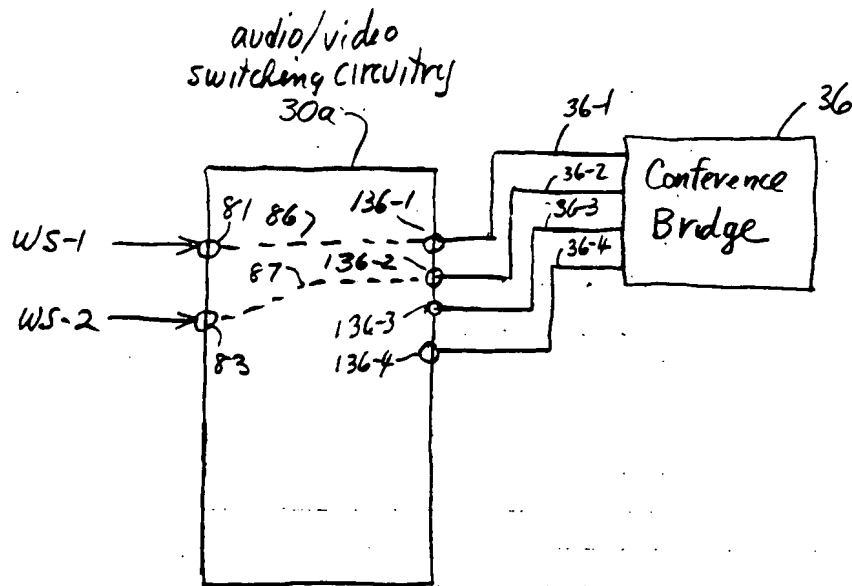 audio/video
switching circuitry
30a
36
36-1
36-2
36-3
36-4
Conference
Bridge
81
86
136-1
WS-1
136-2
87
WS-2
136-3
83
136-4